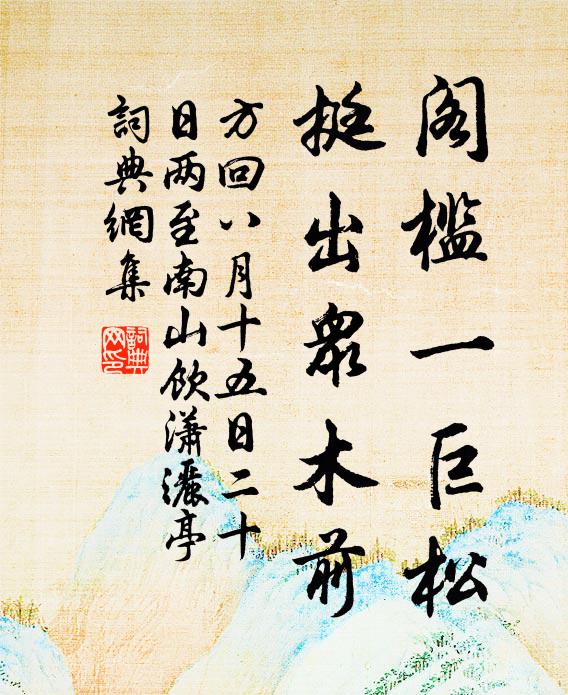 阁槛一巨松
挺出众木前
方回八月十五日二十
日两至南山饮潇灑亭
詞典網集
詞典網印